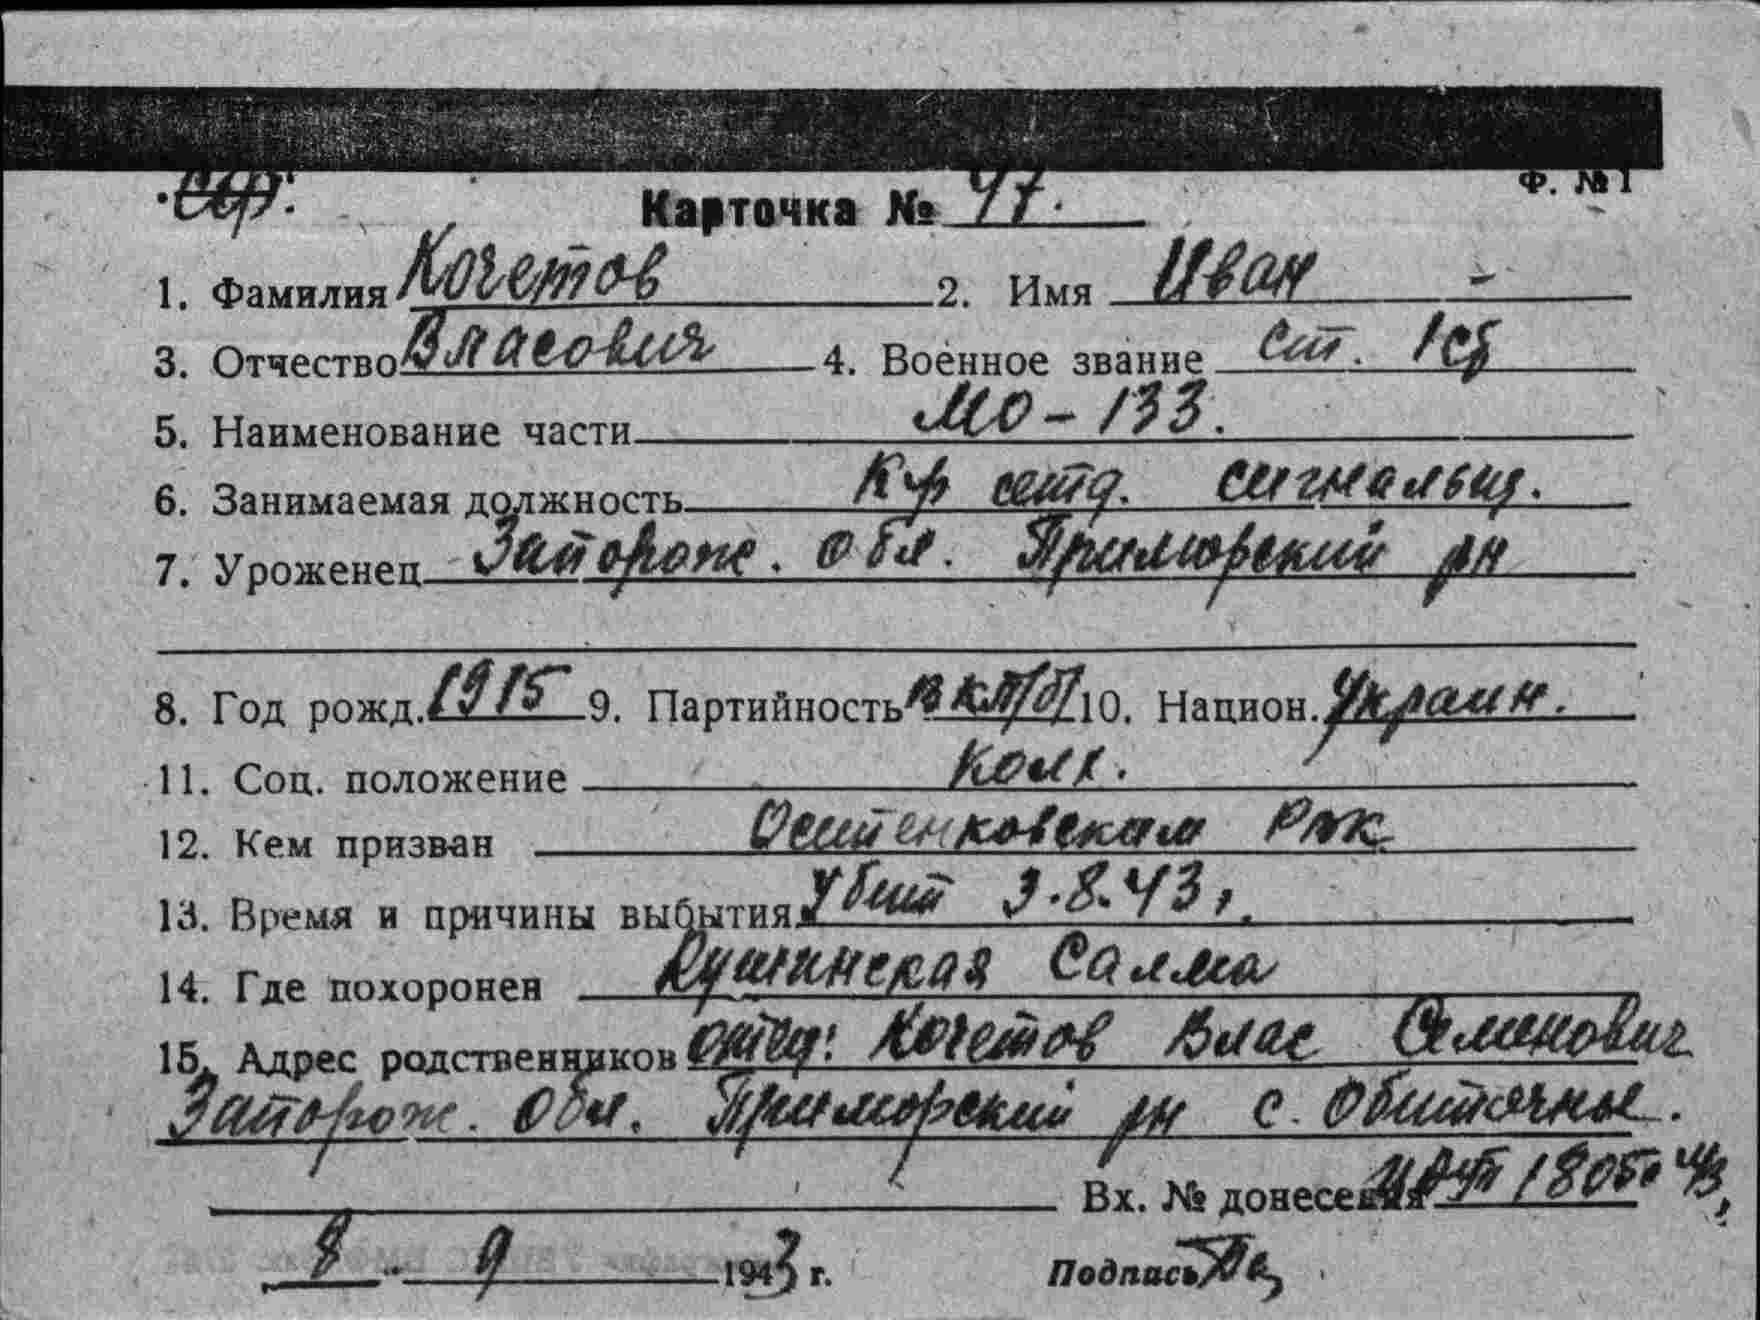 Ф. № 1
Карточка № 47.
1. Фамилия Кочетов 2. Имя Иван
3. Отчество Власович 4. Военное звание ст. 1 ст
5. Наименование части МО-133.
6. Занимаемая должность К-р отд. сигнальщ.
7. Уроженец Запорож. обл. Приморский рн
8. Год рожд. 1915 9. Партийность ВКП/б/ 10. Национ. Украин.
11. Соц. положение колх.
12. Кем призван Осипенковским РВК
13. Время и причины выбытия Убит 3.8.43 г.
14. Где похоронен Салма
15. Адрес родственников отец: Кочетов Влас Семенович
Запорож. обл. Приморский рн с. Обиточное.
Вх. № донесения 1805 43
8 9 1943 г. Подпись